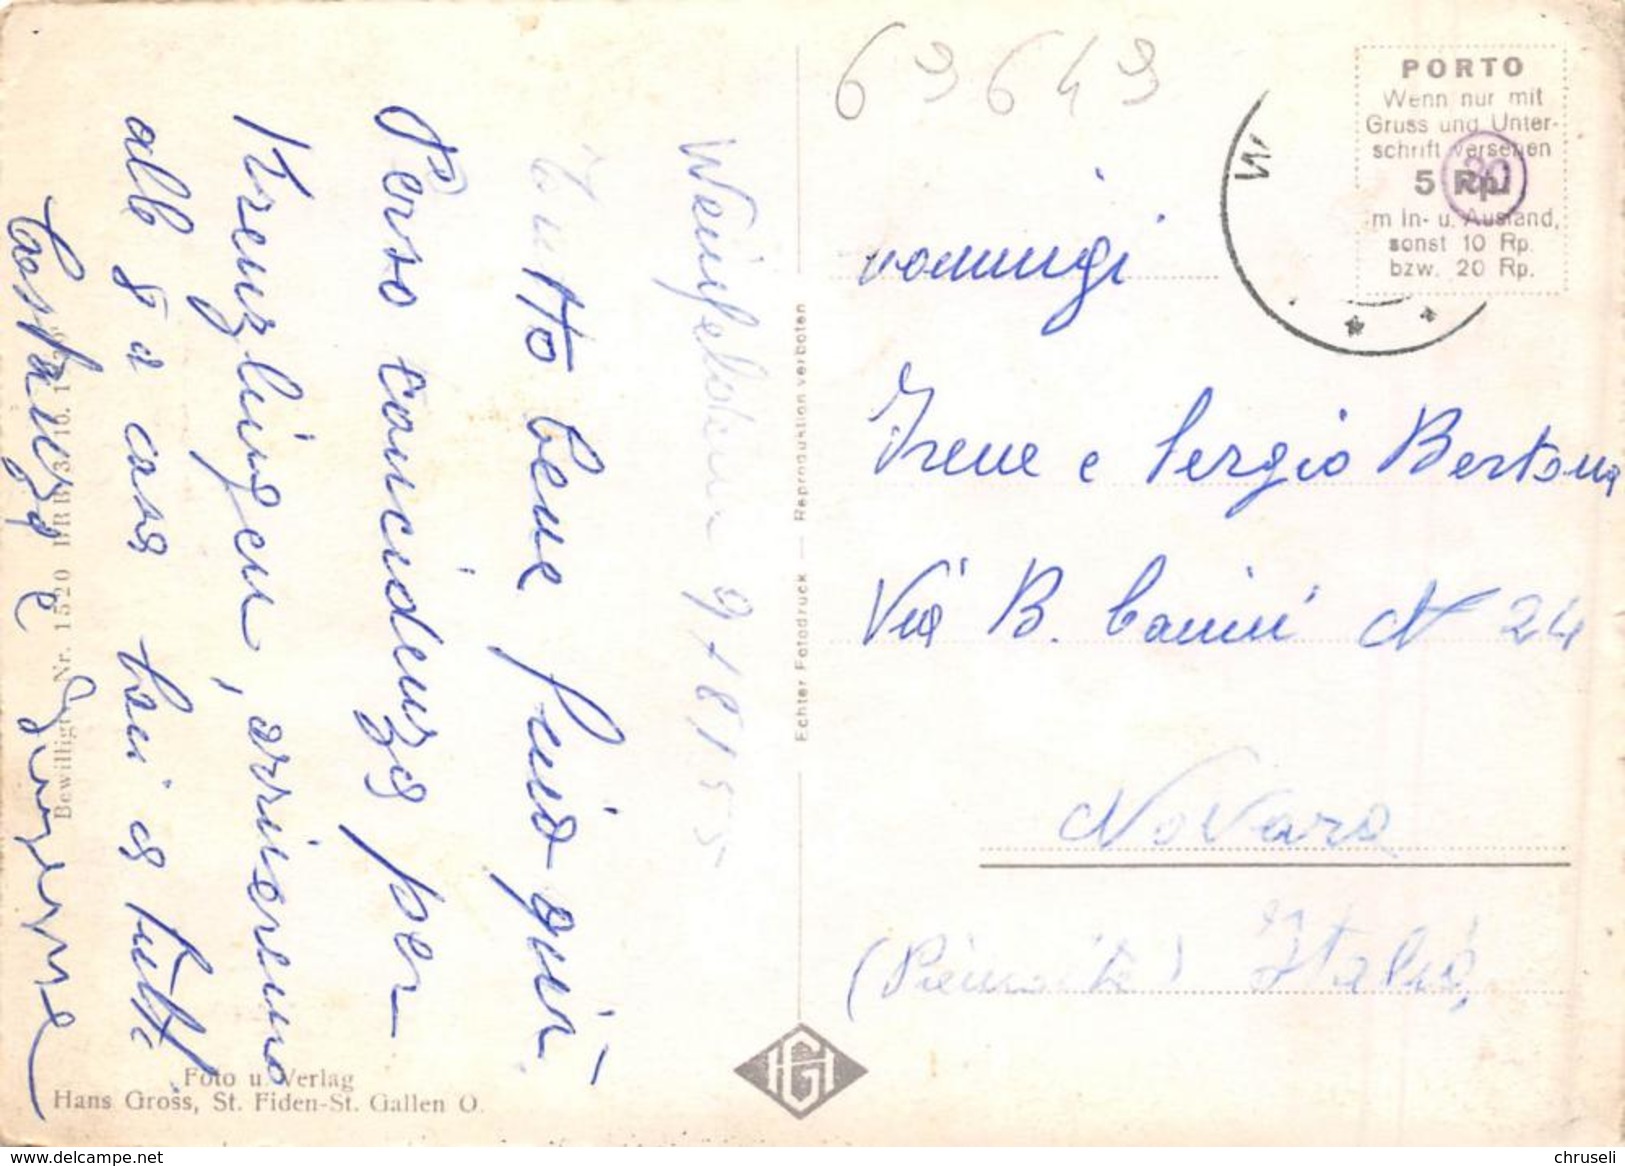 69649
PORTO
Wenn nur mit
Gruss und Unter-
schrift versehen
5 Rp.
m In- u. Ausland,
sonst 10 Rp.
bzw. 20 Rp.
Weinfelden 9/8/55
Tutto bene fino qui.
Perso coincidenza per
Kreuzlingen, arriveremo
alle 8 a casa. Baci a tutti
Costanza e
Irene e Sergio Bertona
Via B. Canini N 24
Novara
(Piemonte) Italia
Echter Fotodruck — Reproduktion verboten
Bewilligt Nr. 1520 BRB 3. 10. 1939
Foto u. Verlag
Hans Gross, St. Fiden-St. Gallen O.
HG
www.delcampe.net
chruseli